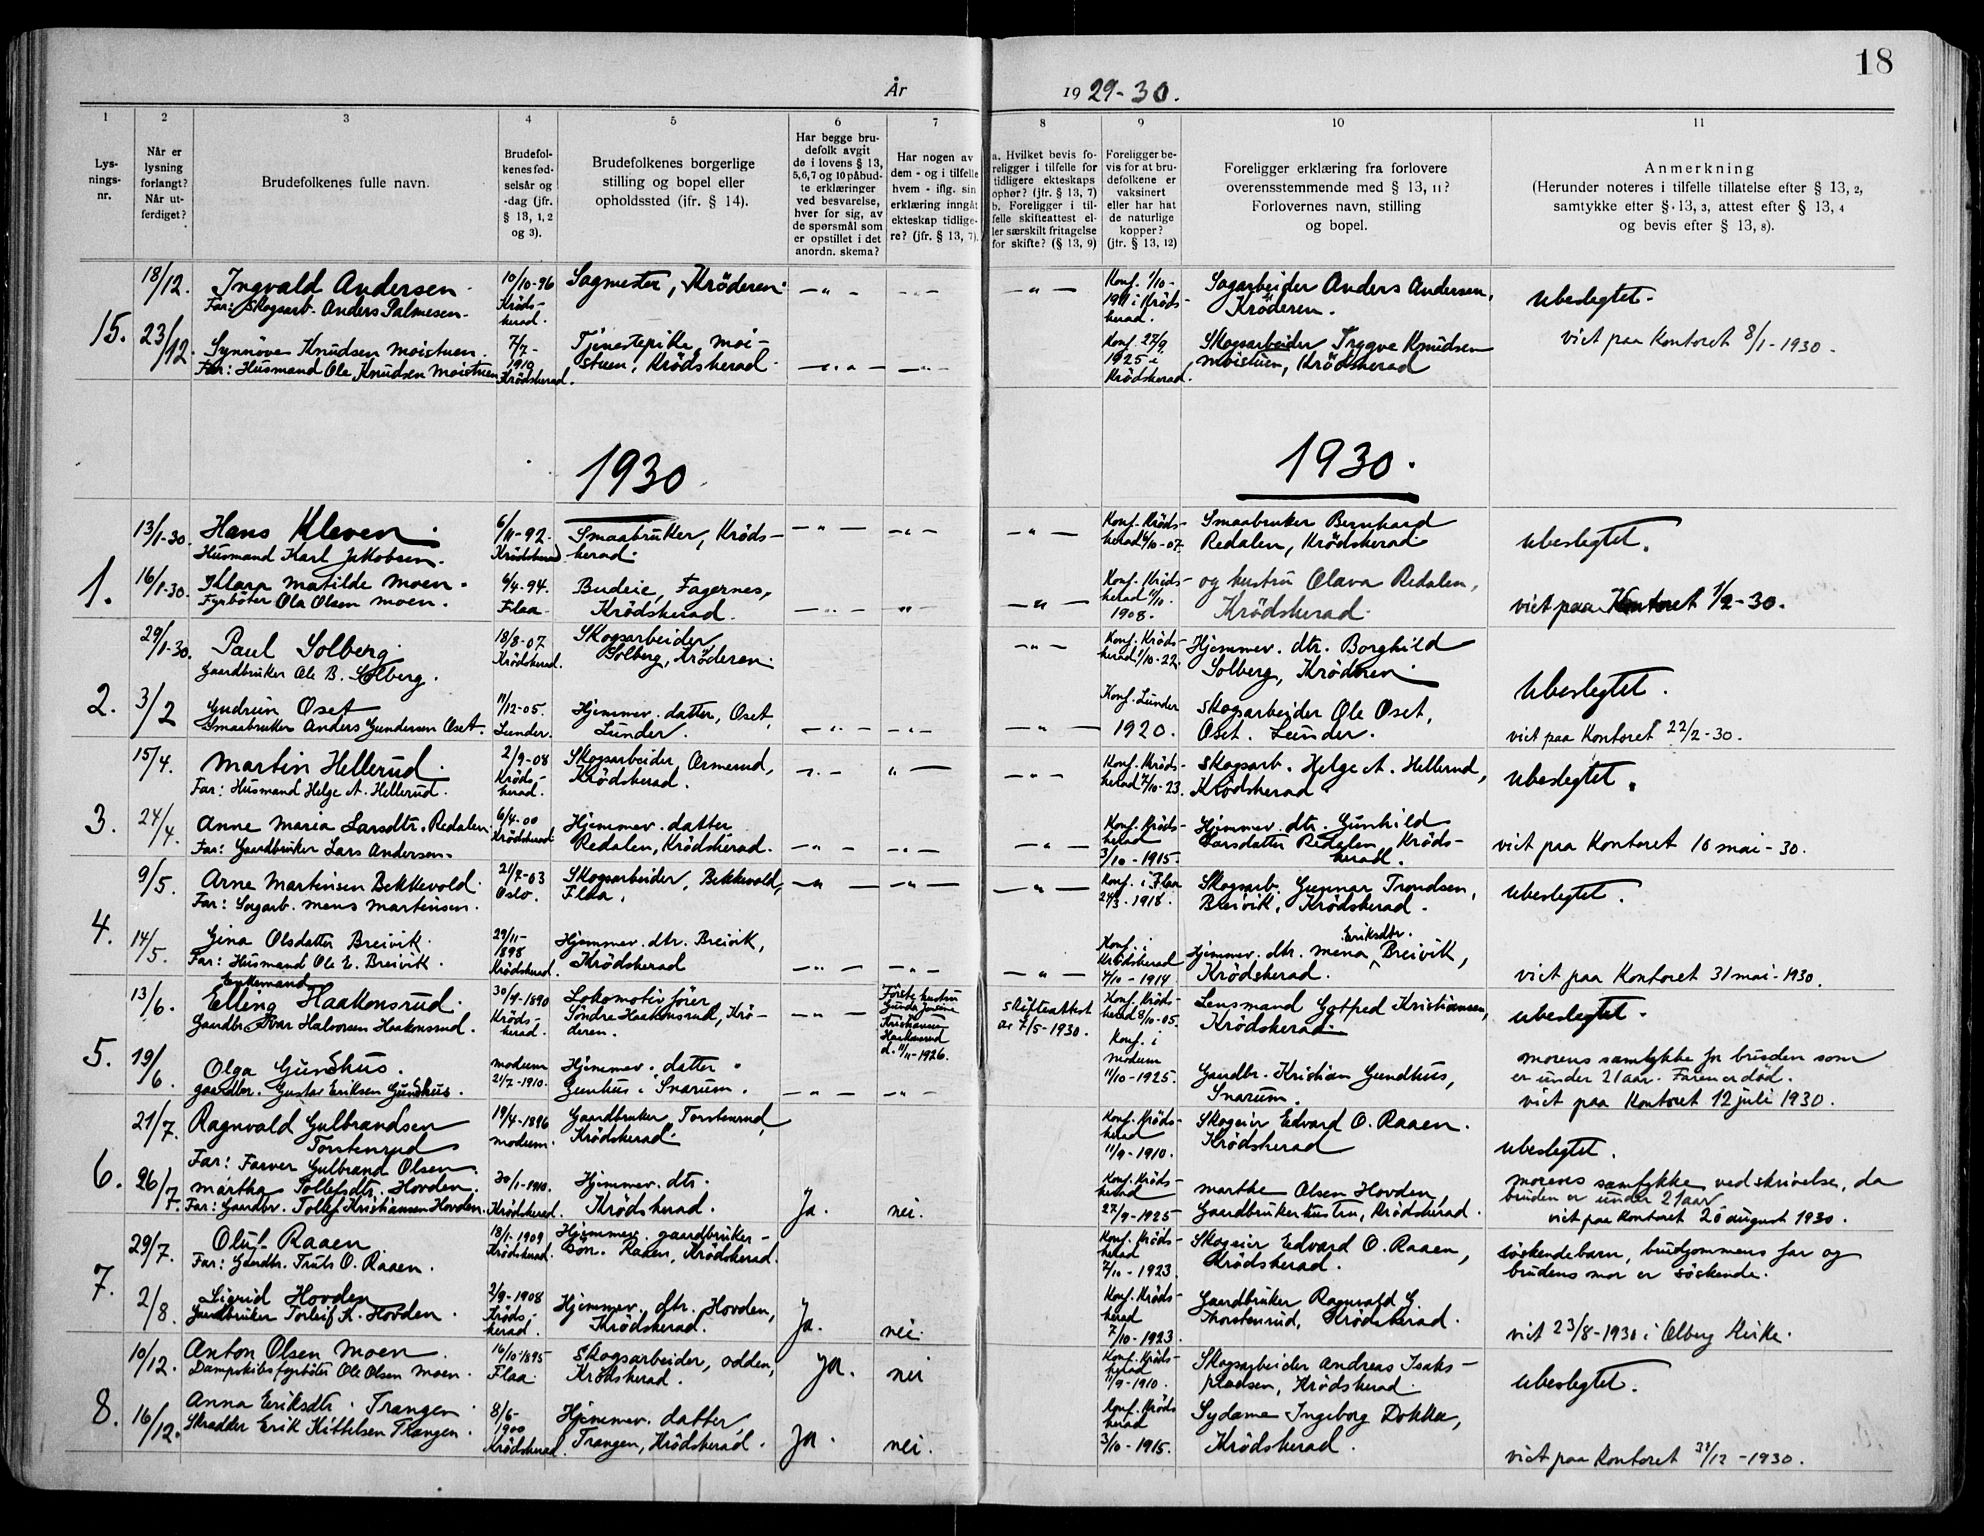 18
År 1929-30.
1
2
3
4
5
6
7
8
9
10
11
Lys-
nings-
nr.
Når er
lysning
forlangt?
Når ut-
ferdiget?
Brudefolkenes fulle navn.
Brudefol-
kenes fød-
selsår og
-dag (jfr.
§ 13, 1, 2
og 3).
Brudefolkenes borgerlige
stilling og bopel eller
opholdssted (jfr. § 14).
Har begge bru-
defolk avgit
de i lovens § 13,
5,6,7 og 10 påbud-
te erklæringer
ved besvarelse,
hver for sig, av
de spørsmål som
er opstillet i det
anordn. skema?
Har nogen av
dem - og i tilfelle
hvem - iflg. sin
erklæring inngåt
ekteskap tidlige-
re? (jfr. § 13, 7).
a. Hvilket bevis fo-
religger i tilfelle for
tidligere ekteskaps
ophør? (jfr. § 13, 7)
b. Foreligger i til-
felle skifteattest el-
ler særskilt fritagelse
for skifte? (§ 13, 9)
Foreligger be-
vis for at bru-
defolkene er
vaksinert
eller har hat
de naturlige
kopper?
(jfr. § 13, 12)
Foreligger erklæring fra forlovere
overensstemmende med § 13, 11?
Forlovernes navn, stilling
og bopel.
Anmerkning
(Herunder noteres i tilfelle tillatelse efter § 13, 2,
samtykke efter § 13, 3, attest efter § 13, 4
og bevis efter § 13, 8).
15.
18/12.
Ingvald Andersen.
Far: Skogsarb. Anders Palmesen.
10/10-96
Kröds-
herad.
Sagmester, Kröderen.
Konf. 1/10-
1911 i Kröds-
herad.
Sagarbeider Anders Andersen,
Kröderen.
Ubeslegtet.
23/12.
Synnöve Knudsen Moistuen.
Far: Husmand Ole Knudsen Moistuen
7/7-
1910
Krödsherad.
Tjenestepike, Moi-
stuen, Krödsherad.
Konf. 27/9
1925 i
Krödsherad.
Skogsarbeider Trygve Knudsen
Moistuen, Krödsherad
viet paa Kontoret 8/1-1930.
1930.
1930.
1.
13/1-30.
Hans Kleven.
Husmand Karl Jakobsen.
6/11-92.
Krödsherad
Smaabruker, Kröds-
herad.
Konf. Kröds-
herad 6/10-07.
Smaabruker Bernhard
Redalen, Krödsherad.
Ubeslegtet.
16/1-30.
Klara Matilde Moen.
Fyrböter Ole Olsen Moen.
6/4-94.
Flaa.
Budeie, Fagernes,
Krödsherad.
Konf. Kröds-
herad
1908.
og hustru Olava Redalen,
Krödsherad.
viet paa Kontoret 1/2-30.
2.
29/1-30.
Paul Solberg.
Gaardbruker Ole B. Solberg.
18/8-07
Krödsherad.
Skogsarbeider,
Solberg, Kröderen.
Konf. Kröds-
herad 1/10-22.
Hjemmev. dtr. Borghild
Solberg, Kröderen
Ubeslegtet.
3/2
Gudrun Oset
Smaabruker Anders Gundersen Oset.
11/12-05.
Lunder.
Hjemmev. datter, Oset,
Lunder.
Konf. Lunder
1920.
Skogsarbeider Ole Oset,
Oset. Lunder.
viet paa Kontoret 22/2-30.
3.
15/4.
Martin Hellerud.
Far: Husmand Helge A. Hellerud.
2/9-08
Kröds-
herad.
Skogsarbeider, Ormerud,
Krödsherad.
Konf. Kröds-
herad 7/10-23.
Skogsarb. Helge A. Hellerud,
Krödsherad
Ubeslegtet.
24/4.
Anne Maria Larsdtr. Redalen.
Far: Gaardbruker Lars Andersen.
6/4-00
Krödsherad
Hjemmev. datter,
Redalen, Krödsherad.
Konf. Kröds-
herad
3/10-1915.
Hjemmev. dtr. Gunhild
Larsdatter Redalen, Kröds-
herad.
viet paa Kontoret 10 mai-30.
4.
9/5.
Arne Martinsen Bekkevold.
Far: Sagarb. Mens Martinsen.
21/7-03
Oslo.
Skogsarbeider, Bekkevold,
Flaa.
Konf. i Flaa
1918.
Skogsarb. Gunnar Trondsen,
Breivik, Krödsherad.
Ubeslegtet.
14/5.
Gina Olsdatter Breivik.
Far: Husmand Ole E. Breivik.
29/11-
1898
Krödsherad.
Hjemmev. dtr. Breivik,
Krödsherad
Konf. i
Krödsherad
4/10-1914
Eriksdtr.
Hjemmev. dtr. Mena Breivik,
Krödsherad.
viet paa Kontoret 31 mai-1930.
5.
13/6.
Enkemand
Elling Haakonsrud.
Gaardbr. Ivar Halvorsen Haakonsrud.
30/4-1890
Kröds-
herad.
Lokomotivförer,
Söndre Haakonsrud, Krö-
deren.
Første hustru
Gunda Josine
Kristiansen
Haakonsrud
d. 11/11-1926.
Skifteattest
av 7/5-1930.
Konf. Kröds-
herad 8/10-05.
Lensmand Gotfred Kristiansen,
Krödsherad
Ubeslegtet.
19/6.
Olga Gundhus.
Gaardbr. Gustav Eriksen Gundhus.
Modum
21/7-1910.
Hjemmev. datter.
Gunhus i Snarum.
Konf. i
Modum
11/10-1925.
Gaardbr. Kristian Gundhus,
Snarum.
Morens samtykke for bruden som
er under 21 aar. Faren er død.
viet paa Kontoret 12 juli 1930.
6.
21/7.
Ragnvald Gulbrandsen
Torstenrud
Far: Farver Gulbrand Olsen
19/4-1896
Modum.
Gaardbruker Torstenrud,
Krödsherad.
Konf. Kröds-
herad
11/9-1910.
Skogeier Edvard O. Raaen.
Krödsherad
Ubeslegtet.
26/7.
Martha Tollefsdtr. Hovden.
Far: Gaardbr. Tollef Kristiansen Hovden.
30/1-1910.
Krödsherad.
Hjemmev. dtr.
Krödsherad.
Ja.
nei.
Konf. Kröds-
herad
27/9-1925
Marthe Olsen Hovden
Gaardbrukerhustru, Krödsherad.
Morens samtykke ved skrivelse, da
bruden er under 21 aar
viet paa Kontoret 20 august 1930.
7.
29/7.
Oluf Raaen
Far: Gaardbr. Truls O. Raaen.
18/1-1909
Krödsherad.
Hjemmev. gaardbruker-
sön. Raaen, Krödsherad.
Konf. Kröds-
herad
7/10-1923.
Skogeier Edvard O. Raaen,
Krödsherad.
Söskendebarn, brudgommens far og
brudens mor er söskende.
2/8.
Sigrid Hovden
Gaardbruker Torleif K. Hovden.
2/9-1908
Kröds-
herad.
Hjemmev. dtr. Hovden,
Krödsherad.
Ja.
nei.
Konf. Kröds-
herad
7/10-1923.
Gaardbruker Ragnvald G.
Thorstenrud, Krödsherad.
viet 23/8-1930 i Olberg Kirke.
8.
10/12.
Anton Olsen Moen
Dampskibsfyrböter Ole Olsen Moen.
16/10-1895
Flaa.
Skogsarbeider, Odden,
Krödsherad.
Ja.
nei
Konf. Kröds-
herad
11/9-1910.
Skogsarbeider Andreas Isaks-
pladsen, Krödsherad.
Ubeslegtet.
16/12.
Anna Eriksdtr. Trangen
Skrædder Erik Kittelsen Trangen.
8/6-
1900
Krödsherad.
Hjemmev. datter,
Trangen, Krödsherad.
Ja.
nei.
Konf. Kröds-
herad
3/10-1915.
Sydame Ingeborg Dokka,
Krödsherad.
viet paa Kontoret 31/12-1930.